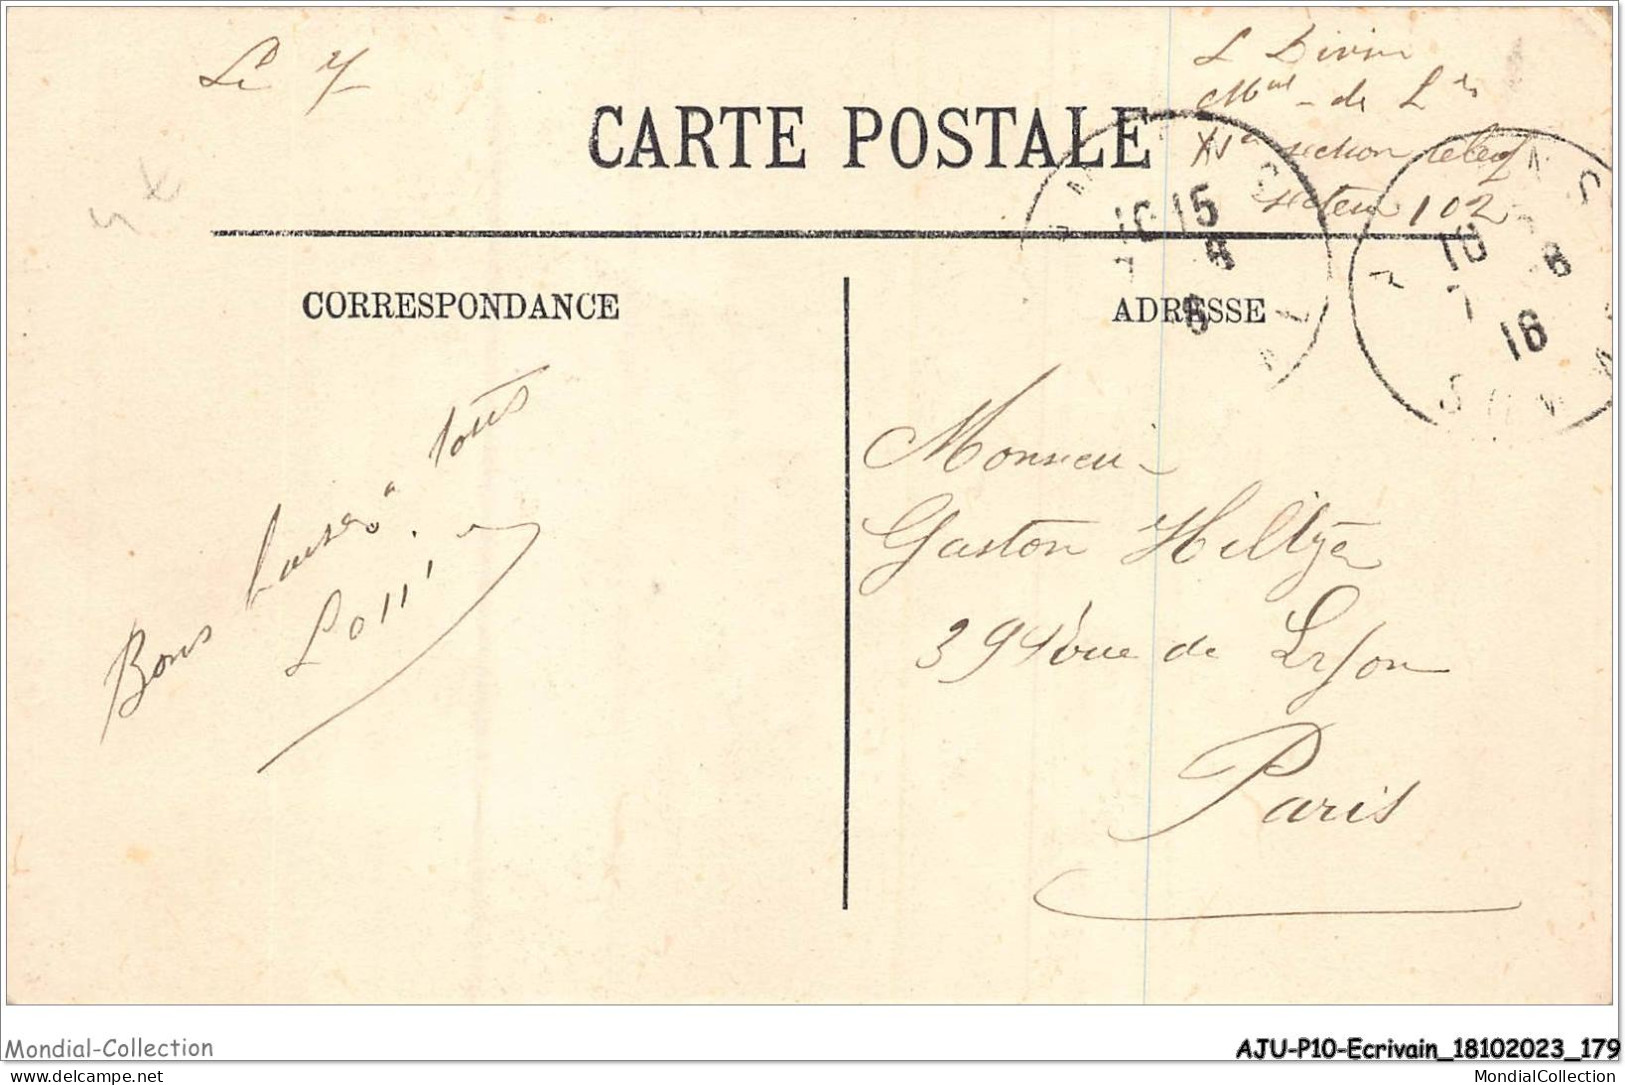 Le 7
L Divin
Mal - de Lis
section
secteur 102
CARTE POSTALE
10 15
8
10
7 8
16
CORRESPONDANCE
ADRESSE
Bons baisers à tous
Monsieur
Gaston Heltzer
39 rue de Lyon
Paris
Mondial-Collection
AJU-P10-Ecrivain_18102023_179
delcampe.net
MondialCollection